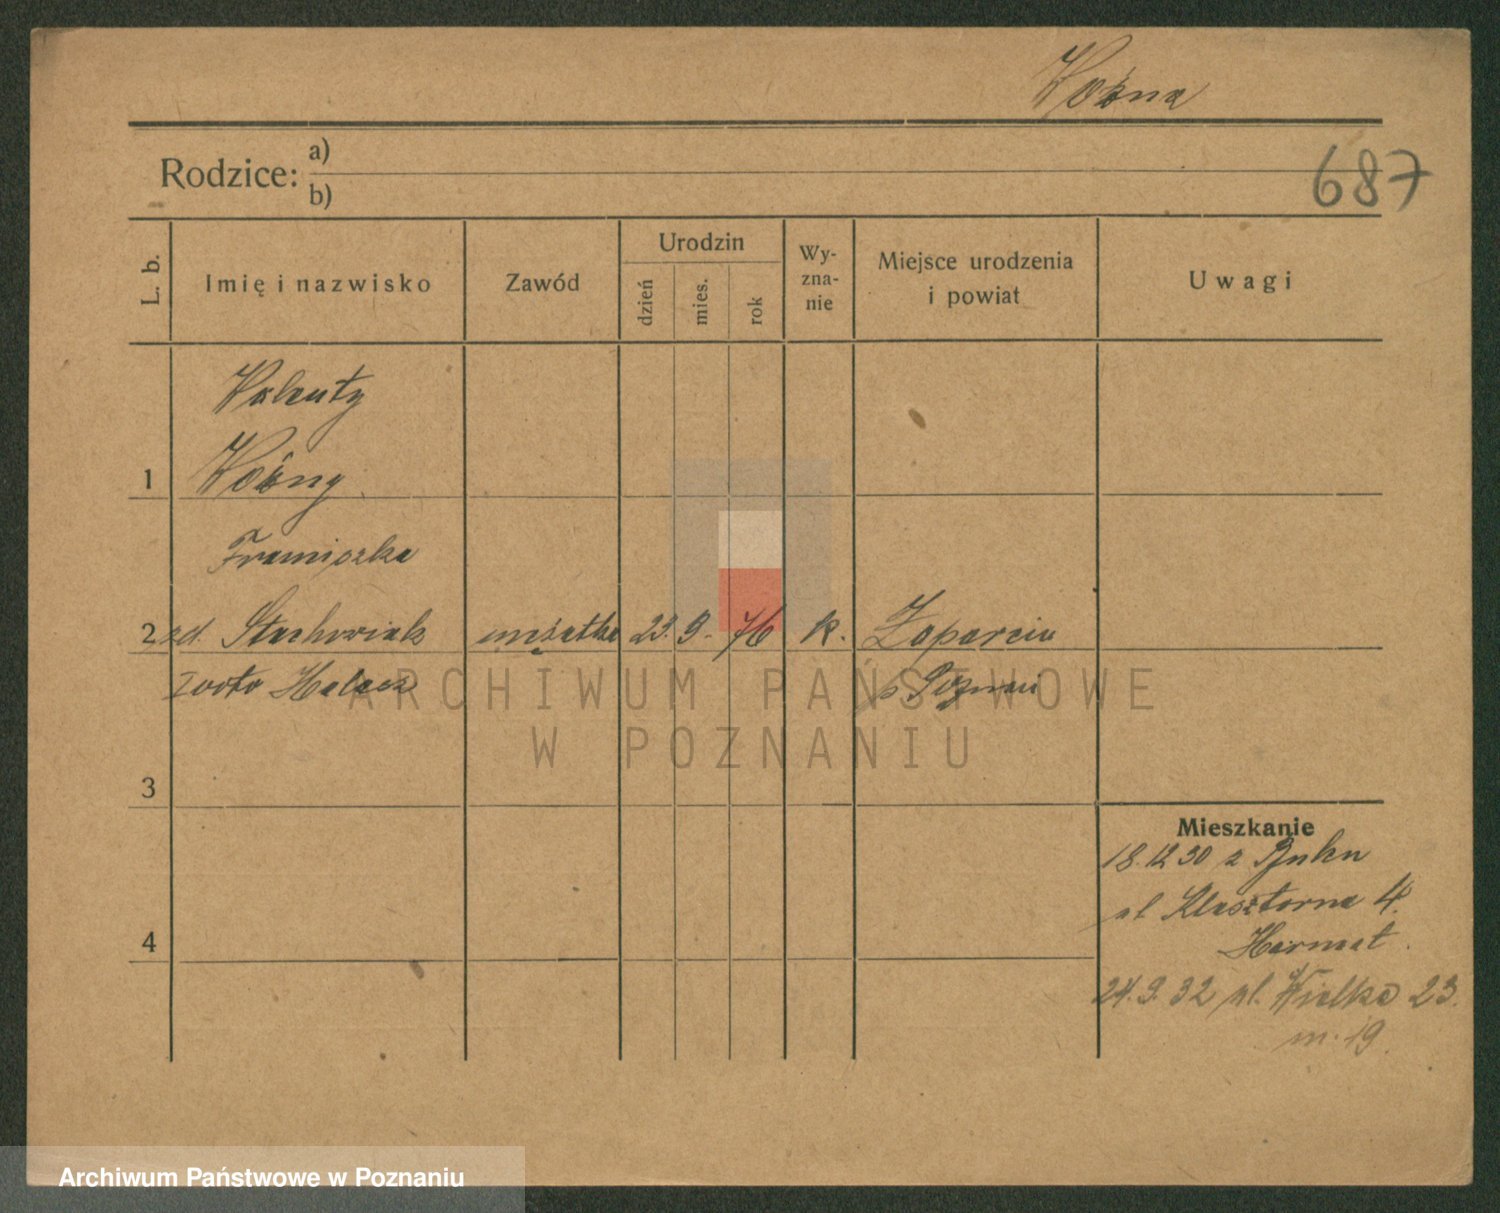 Woźna
Rodzice: a)
b)
687
L. b.
Imię i nazwisko
Zawód
Urodzin
dzień
mies.
rok
Wy-
zna-
nie
Miejsce urodzenia
i powiat
Uwagi
Walenty
1 Woźny
Franciszka
2 zd. Stachowiak mężatka 23. 9. 76 k.
Ivoto
p Poznań
3
Mieszkanie
18.12 30 z Buku
ul Klasztorna 4.
4
24.9.32 ul. Wielka 23.
m. 19.
ARCHIWUM PAŃSTWOWE
W POZNANIU
Archiwum Państwowe w Poznaniu